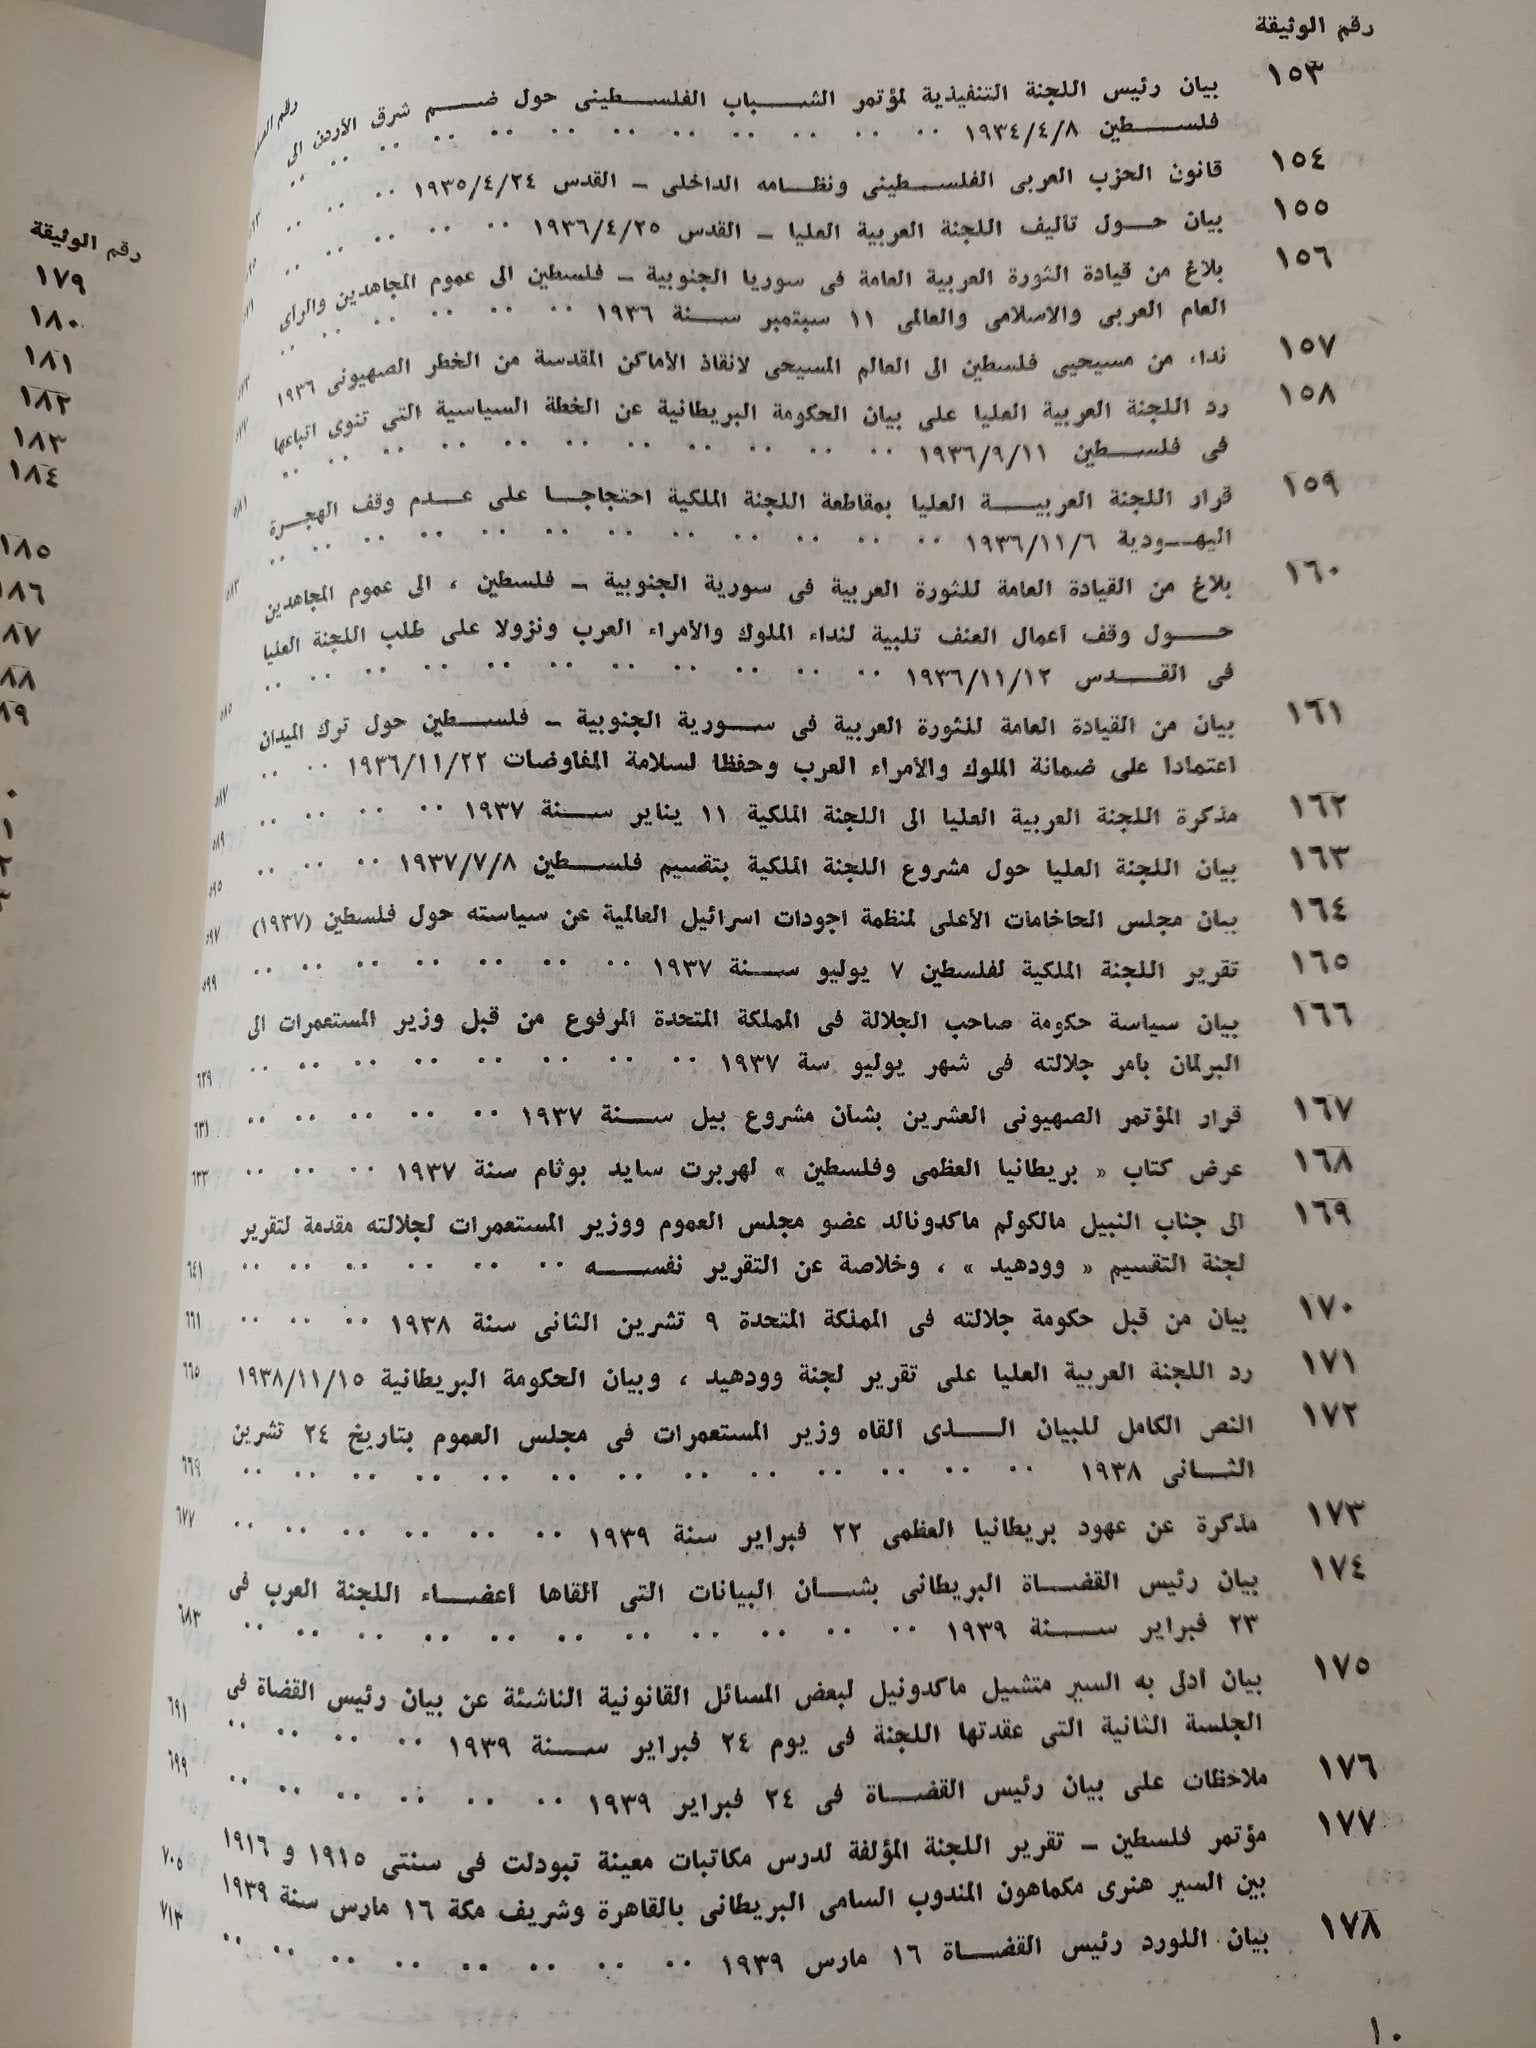 رقم الوثيقة
١٥٣ بيان رئيس اللجنة التنفيذية لمؤتمر الشباب الفلسطينى حول ضم شرق الأردن الى
فلسطين ١٩٣٤/٤/٨
١٥٤ قانون الحزب العربى الفلسطينى ونظامه الداخلى – القدس ١٩٣٥/٤/٢٤
١٥٥ بيان حول تأليف اللجنة العربية العليا – القدس ١٩٣٦/٤/٢٥
١٥٦ بلاغ من قيادة الثورة العربية العامة فى سوريا الجنوبية – فلسطين الى عموم المجاهدين والرأى
العام العربى والاسلامى والعالمى ١١ سبتمبر سنة ١٩٣٦
١٥٧ نداء من مسيحيى فلسطين الى العالم المسيحى لانقاذ الأماكن المقدسة من الخطر الصهيونى ١٩٣٦
١٥٨ رد اللجنة العربية العليا على بيان الحكومة البريطانية عن الخطة السياسية التى تنوى اتباعها
فى فلسطين ١٩٣٦/٩/١١
١٥٩ قرار اللجنة العربية العليا بمقاطعة اللجنة الملكية احتجاجا على عدم وقف الهجرة
اليهودية ١٩٣٦/١١/٦ ٥٨١
١٦٠ بلاغ من القيادة العامة للثورة العربية فى سورية الجنوبية – فلسطين ، الى عموم المجاهدين
حول وقف أعمال العنف تلبية لنداء الملوك والأمراء العرب ونزولا على طلب اللجنة العليا
فى القدس ١٩٣٦/١١/١٢ ٥٨٣
١٦١ بيان من القيادة العامة للثورة العربية فى سورية الجنوبية – فلسطين حول ترك الميدان
اعتمادا على ضمانة الملوك والأمراء العرب وحفظا لسلامة المفاوضات ١٩٣٦/١١/٢٢ ٥٨٥
١٦٢ مذكرة اللجنة العربية العليا الى اللجنة الملكية ١١ يناير سنة ١٩٣٧ ٥٨٧
١٦٣ بيان اللجنة العليا حول مشروع اللجنة الملكية بتقسيم فلسطين ١٩٣٧/٧/٨ ٥٨٩
١٦٤ بيان مجلس الحاخامات الأعلى لمنظمة اجودات اسرائيل العالمية عن سياسته حول فلسطين (١٩٣٧) ٥٩٥
١٦٥ تقرير اللجنة الملكية لفلسطين ٧ يوليو سنة ١٩٣٧ ٥٩٧
١٦٦ بيان سياسة حكومة صاحب الجلالة فى المملكة المتحدة المرفوع من قبل وزير المستعمرات الى ٥٩٩
البرلمان بأمر جلالته فى شهر يوليو سة ١٩٣٧ ٦٢٩
١٦٧ قرار المؤتمر الصهيونى العشرين بشأن مشروع بيل سنة ١٩٣٧ ٦٣١
١٦٨ عرض كتاب « بريطانيا العظمى وفلسطين » لهربرت سايد بوثام سنة ١٩٣٧ ٦٣٣
١٦٩ الى جناب النبيل مالكولم ماكدونالد عضو مجلس العموم ووزير المستعمرات لجلالته مقدمة لتقرير
لجنة التقسيم « وودهيد » ، وخلاصة عن التقرير نفسه ٦٤١
١٧٠ بيان من قبل حكومة جلالته فى المملكة المتحدة ٩ تشرين الثانى سنة ١٩٣٨ ٦٦١
١٧١ رد اللجنة العربية العليا على تقرير لجنة وودهيد ، وبيان الحكومة البريطانية ١٩٣٨/١١/١٥ ٦٦٥
١٧٢ النص الكامل للبيان الذى ألقاه وزير المستعمرات فى مجلس العموم بتاريخ ٢٤ تشرين
الثانى ١٩٣٨ ٦٦٩
١٧٣ مذكرة عن عهود بريطانيا العظمى ٢٢ فبراير سنة ١٩٣٩ ٦٧٧
١٧٤ بيان رئيس القضاة البريطانى بشأن البيانات التى ألقاها أعضاء اللجنة العرب فى
٢٣ فبراير سنة ١٩٣٩ ٦٨٣
١٧٥ بيان ادلى به السير متشيل ماكدونيل لبعض المسائل القانونية الناشئة عن بيان رئيس القضاة فى
الجلسة الثانية التى عقدتها اللجنة فى يوم ٢٤ فبراير سنة ١٩٣٩ ٦٩١
١٧٦ ملاحظات على بيان رئيس القضاة فى ٢٤ فبراير ١٩٣٩ ٦٩٩
١٧٧ مؤتمر فلسطين – تقرير اللجنة المؤلفة لدرس مكاتبات معينة تبودلت فى سنتى ١٩١٥ و ١٩١٦
بين السير هنرى مكماهون المندوب السامى البريطانى بالقاهرة وشريف مكة ١٦ مارس سنة ١٩٣٩ ٧٠٥
١٧٨ بيان اللورد رئيس القضاة ١٦ مارس ١٩٣٩ ٧١٣
١٠
رقم الوثيقة
١٧٩
١٨٠
١٨١
١٨٢
١٨٣
١٨٤
١٨٥
١٨٦